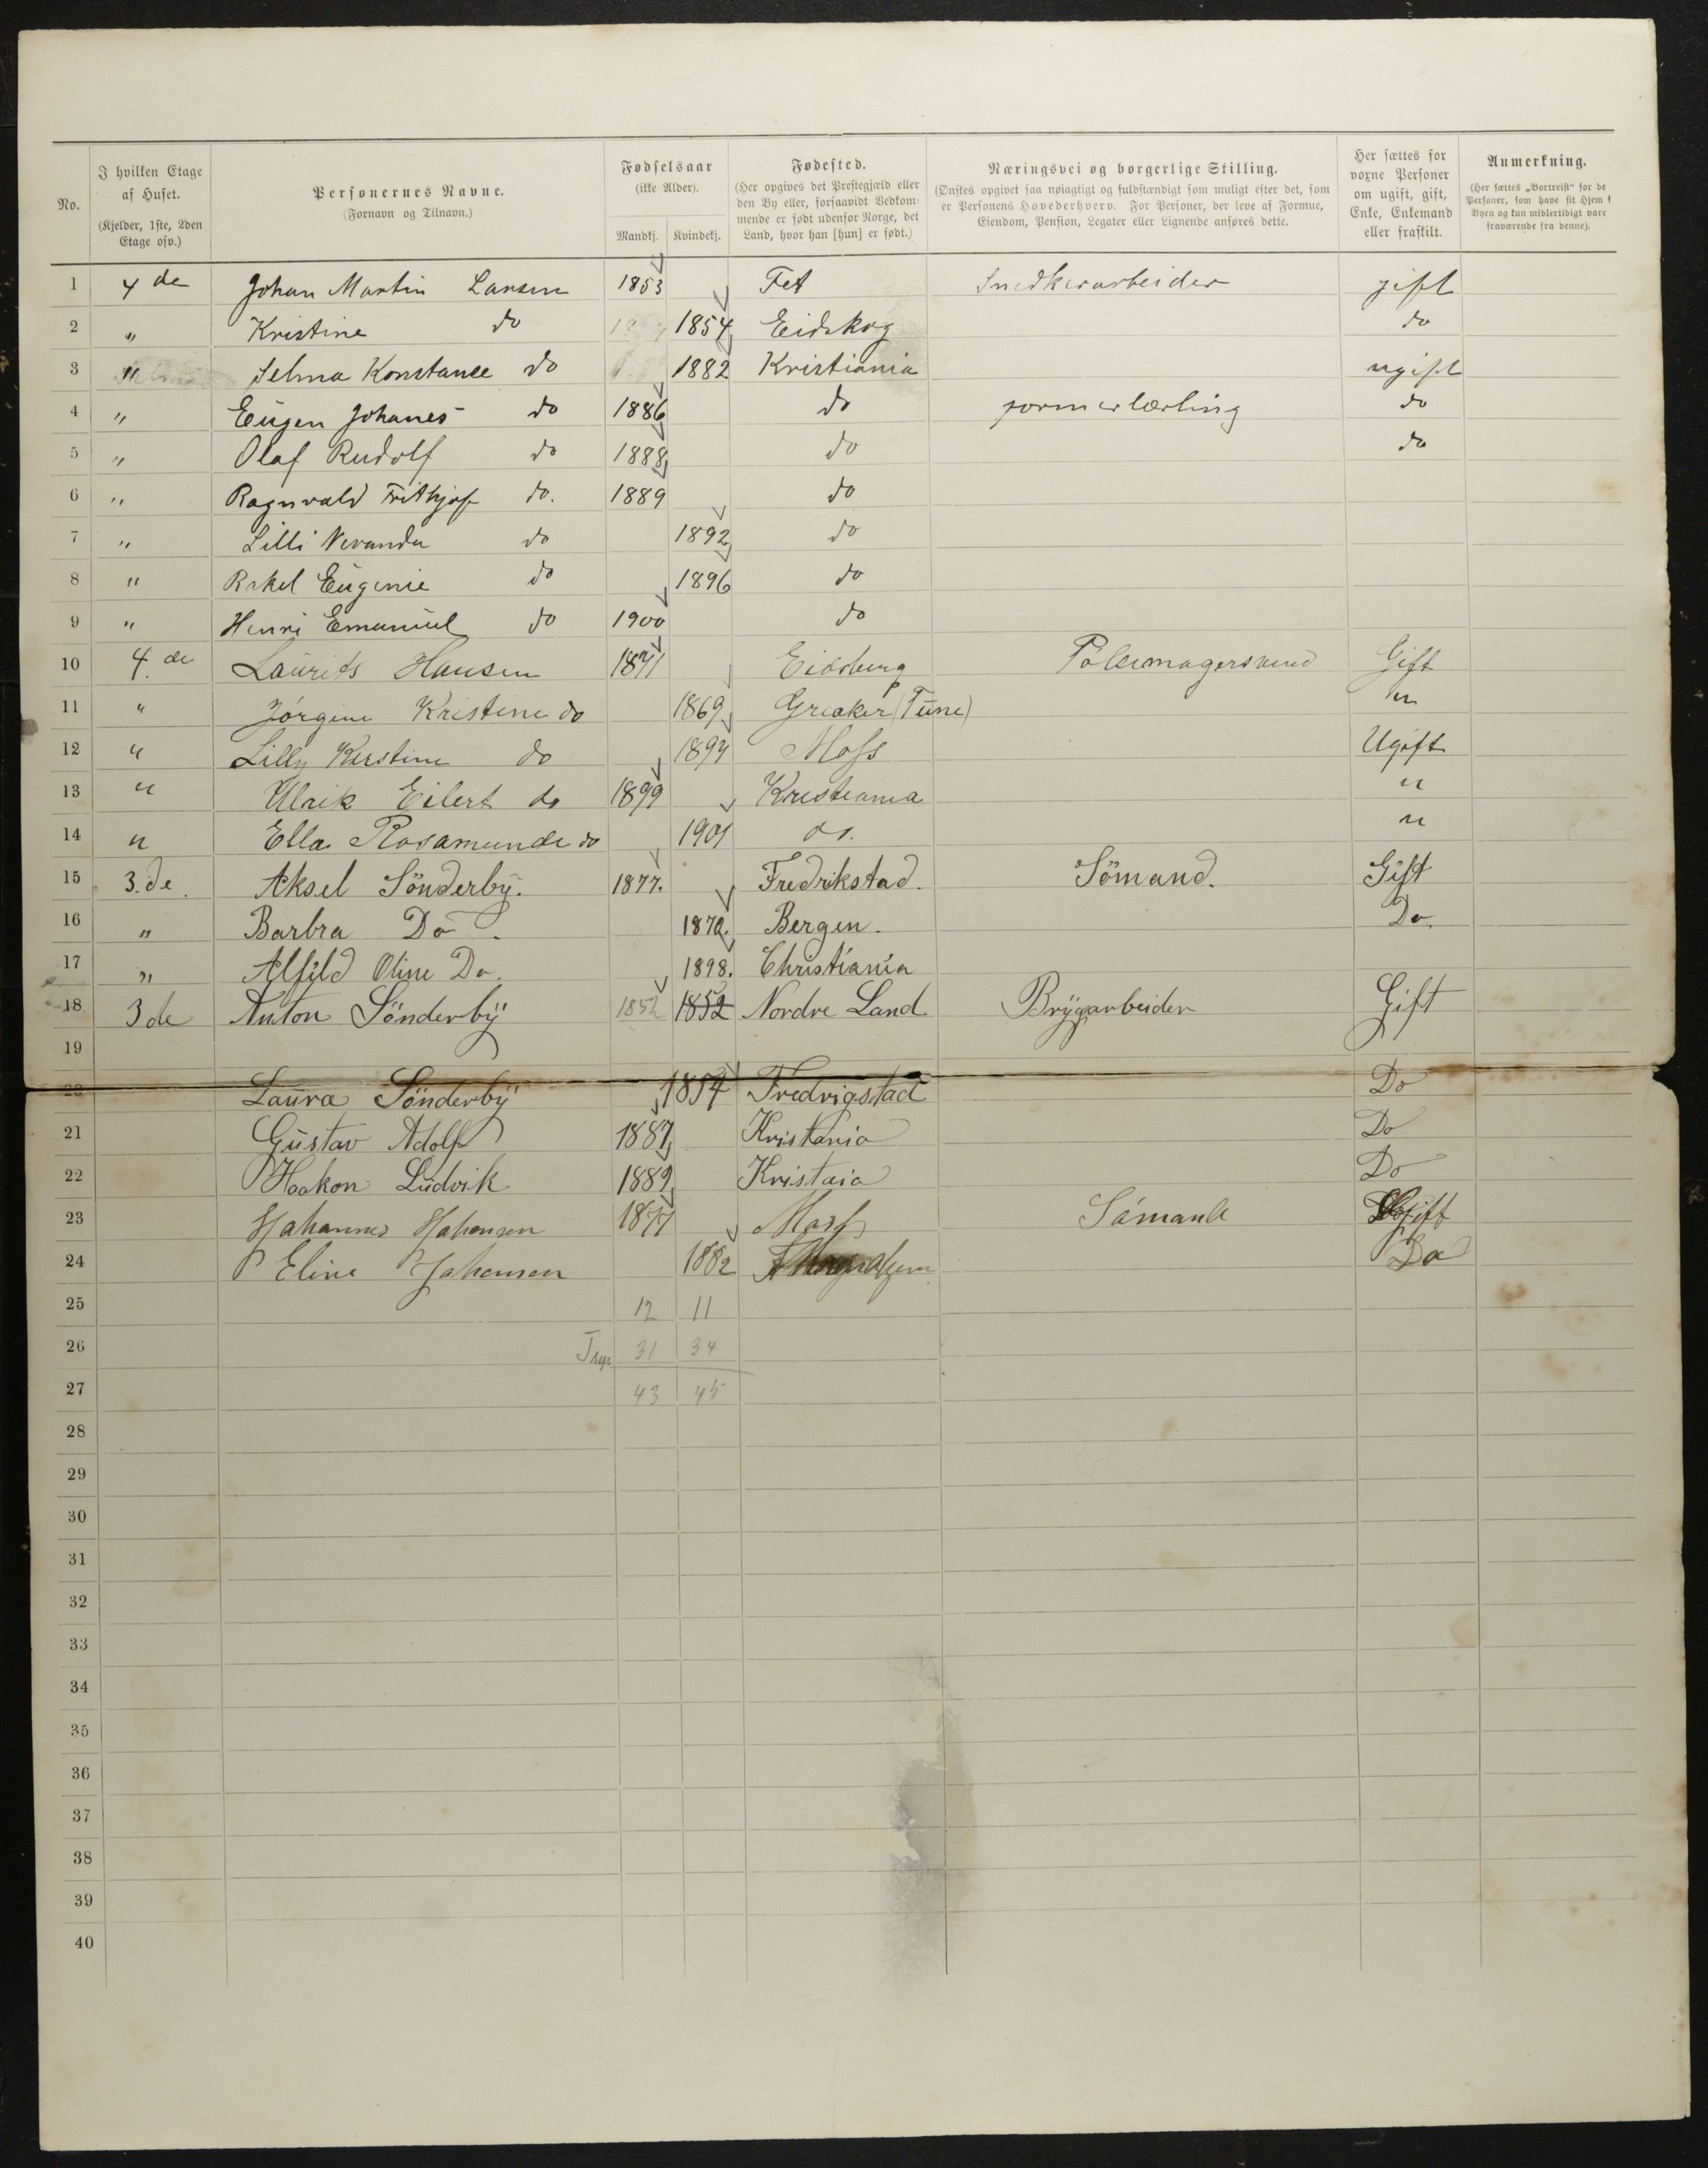 No.
I hvilken Etage af Huset. (Kjelder, 1ste, 2den Etage osv.)
Personernes Navne. (Fornavn og Tilnavn.)
Fødselsaar (ikke Alder). Mandkj. Kvindekj.
Fødested. (Her opgives det Prestegjæld eller den By eller, forsaavidt Vedkommende er født udenfor Norge, det Land, hvor han [hun] er født.)
Næringsvei og borgerlige Stilling. (Ønskes opgivet saa nøiagtigt og fuldstændigt som muligt efter det, som er Personens Hovederhverv. For Personer, der leve af Formue, Eiendom, Pension, Legater eller Lignende anføres dette.
Her sættes for voxne Personer om ugift, gift, Enke, Enkemand eller fraskilt.
Anmerkning. (Her sættes „Bortreist“ for de Personer, som have sit Hjem i Byen og kun midlertidigt vare fraværende fra denne).
1 4 de Johan Martin Larsen 1853 Fet Snedkerarbeider gift
2 " Kristine do 1854 Eidskog do
3 " Selma Konstance do 1882 Kristiania ugift
4 " Eugen Johanes do 1886 do formerlærling do
5 " Olaf Rudolf do 1888 do do
6 " Ragnvald Frithjof do. 1889 do
7 " Lilli Veranda do 1892 do
8 " Rakel Eugenie do 1896 do
9 " Henri Emanuel do 1900 do
10 4. de Laurits Hansen 1871 Eidsberg Pølsemagersvend Gift
11 " Jórgine Kristine do 1869 Greaker (Tune) "
12 " Lilly Kirstine do 1894 Moss Ugift
13 " Ulrik Eilert do 1899 Kristiania "
14 " Ella Rosamunde do 1901 do. "
15 3. de. Aksel Sönderby. 1877. Fredrikstad. Sömand. Gift
16 " Barbra Do. 1872. Bergen. Do.
17 " Alfild Oline Do. 1898. Christiania
18 3 de Anton Sönderby 1852 1852 Nordre Land Brygarbeider Gift
19
20 Laura Sönderby 1854 Fredrigstad Do
21 Gustav Adolf 1887 Kristania Do
22 Haakon Ludvik 1889 Kristaia Do
23 Johannes Johansen 1877 Moss Sómand Gift
24 Eline Johansen 1882 Do
25 12 11
26 31 34
27 43 45
28
29
30
31
32
33
34
35
36
37
38
39
40